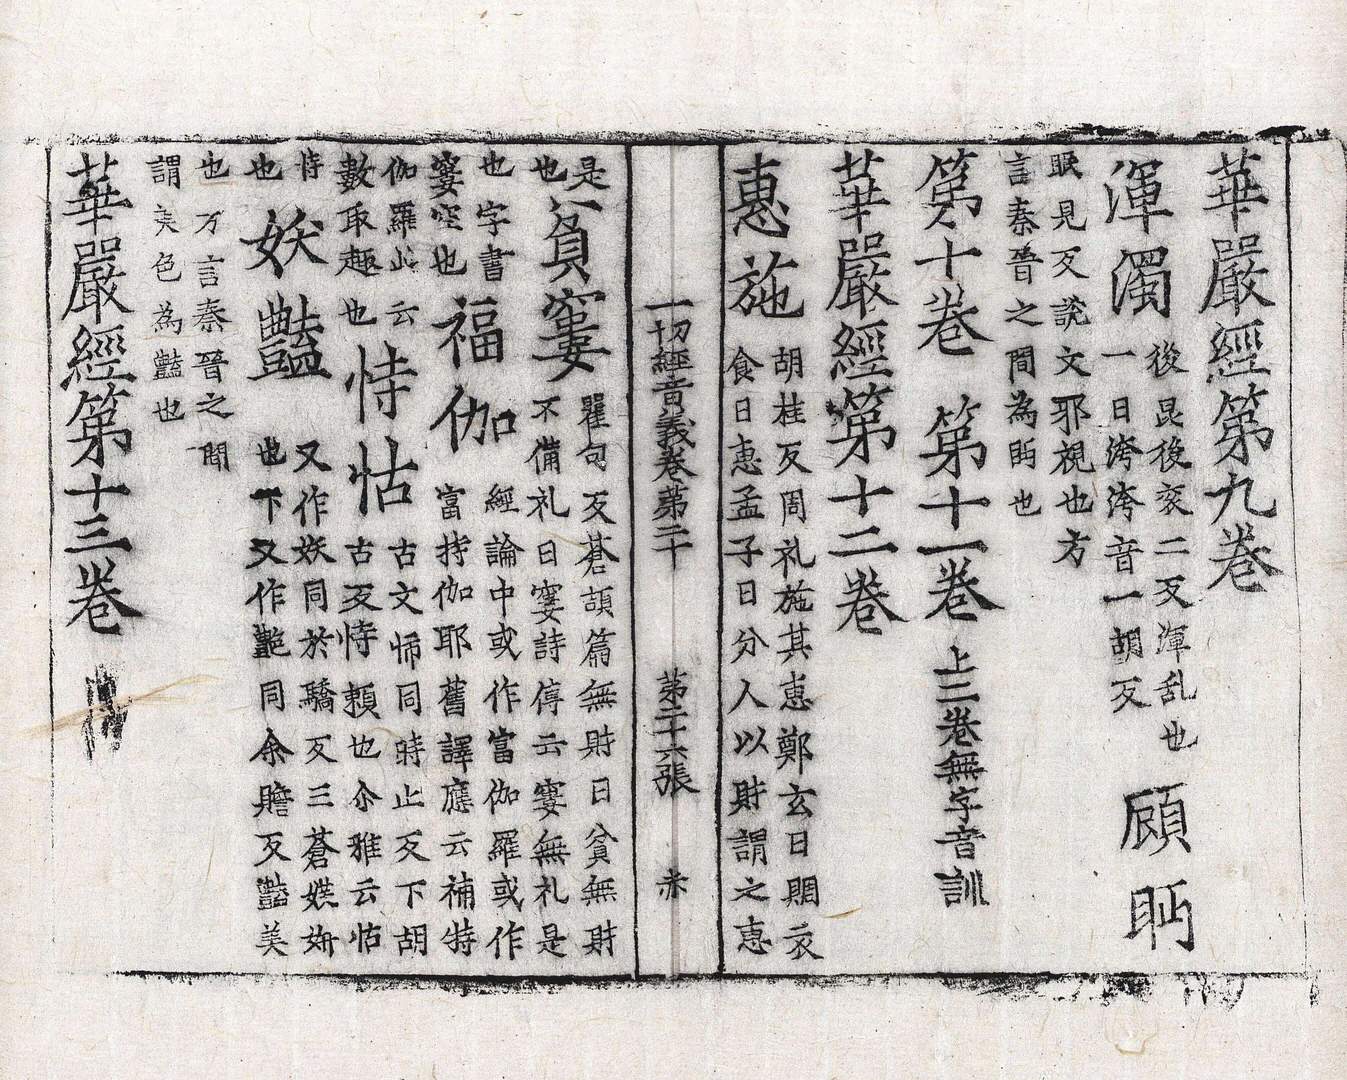 華嚴經第九卷
渾濁
後昆後衮二反渾乱也
一曰洿洿音一胡反
顧眄
眠見反說文邪視也方
言秦晉之間為眄也
第十卷 第十一卷 上二卷無字音訓
華嚴經第十二卷
惠施
胡桂反周礼施其惠鄭玄曰賙衣
食曰惠孟子曰分人以財謂之惠
一切經音義卷第二十 第二十六張 赤
是
也
貧窶
瞿句反蒼頡篇無財曰貧無財
不備礼曰窶詩停云窶無礼是
也字書
窶空也
福伽
經論中或作富伽羅或作
富持伽耶舊譯應云補特
伽羅此云
數取趣也
恃怙
古文恀同時止反下胡
古反恃頼也尒雅云怙
恃
也
妖豔
又作妖同於驕反三蒼媄妍
也下又作艷同余贍反豔美
也方言秦晉之間
謂美色為豔也
華嚴經第十三卷